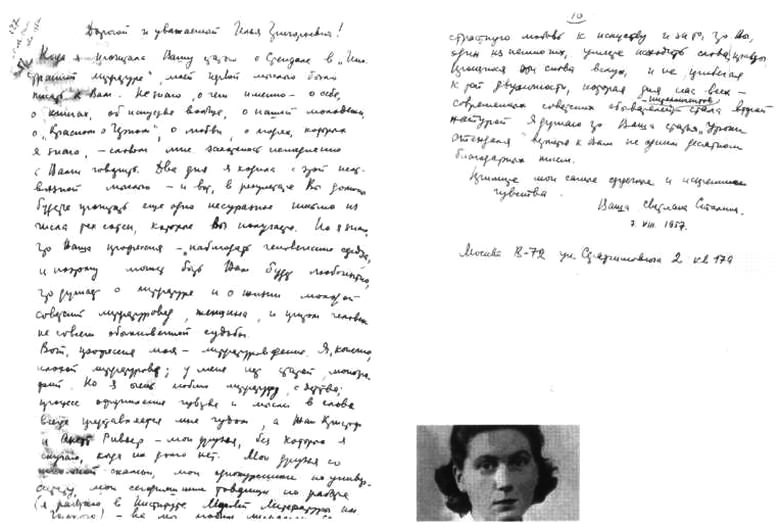 Дорогой и уважаемый Илья Григорьевич!
Когда я прочитала Вашу статью о Стендале в "Ино-
странной литературе", моей первой мыслью было
писать к Вам. Не знаю, о чем именно – о себе,
о книгах, об искусстве вообще, о нашей молодежи,
о "Красном и Черном", о любви, о людях, которых
я знаю, – словом мне захотелось немедленно
с Вами говорить. Два дня я ходила с этой неот-
вязной мыслью – и вот, в результате Вы должны
будете прочитать еще одно несуразное письмо из
числа тех сотен, которые Вы получаете. Но я знаю,
что Ваша профессия – наблюдать человеческие сердца,
и поэтому может быть Вам будет любопытно,
что думает о литературе и о жизни молодой
советский литературовед, женщина, и притом человек
не совсем обыкновенной судьбы.
Вот, профессия моя – литературоведение. Я, конечно,
плохой литературовед; у меня нет статей, моногра-
фий. Но я очень люблю литературу с детства;
процесс облечения чувства и мысли в слова
всегда представляется мне чудом, а Жан Кристоф
и Аннет Ривьер – мои друзья, без которых я
скучаю, когда их долго нет. Мои друзья со
школьной скамьи, мои однокурсники по универ-
ситету, мои сегодняшние товарищи по работе
(я работаю в Институте Мировой Литературы им.
Горького) – не мо
10
страстную любовь к искусству и за то, что Вы,
один из немногих, умеете находить слова правды,
не прибегая
к той двуличности, которая для нас всех –
современных советских интеллигентов стала второй
натурой. Я думаю что Ваша статья "Уроки
Стендаля" вернется к Вам не одним десятком
благодарных писем.
Примите мои самые сердечные и искренние
чувства.
Ваша Светлана Сталина.
7. VIII. 1957.
Москва В-72 ул. Серафимовича 2 кв 179